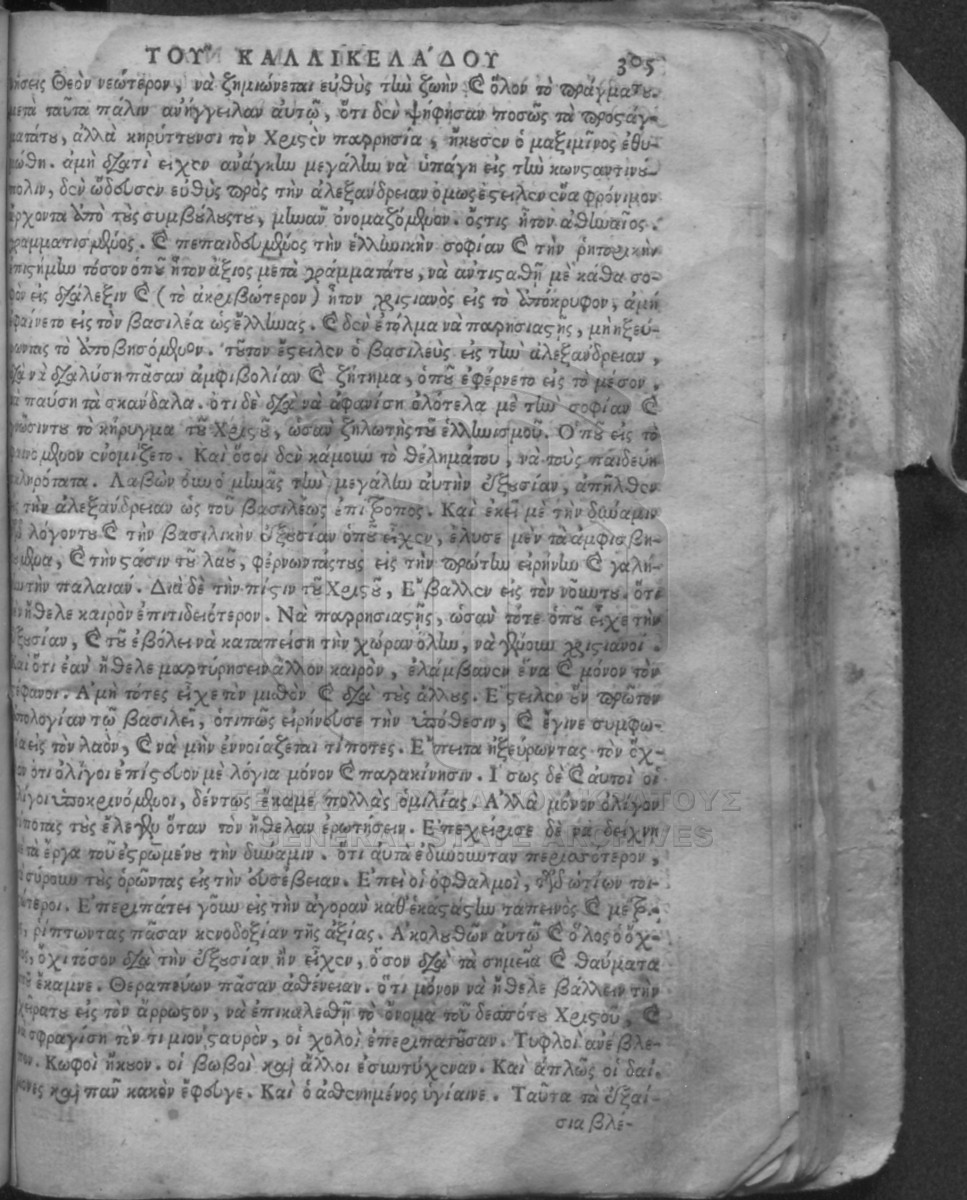 ΤΟΥ ΚΑΛΛΙΚΕΛΑΔΟΥ 305
Θεὸν νεώτερον, νὰ ζημιώνεται εὐθὺς τὴν ζωὴν καὶ ὅλον τὸ πρᾶγμάτου.
μετὰ ταῦτα πάλιν ἀνήγγειλαν αὐτῷ, ὅτι δὲν ψήφησαν ποσῶς τὰ προστάγ-
ματάτου, ἀλλὰ κηρύττουνσι τὸν Χριστὸν παρρησία, ἤκουσεν ὁ μαξιμῖνος ἐθυ-
μώθη. ἀμὴ διατὶ εἶχεν ἀνάγκην μεγάλην νὰ ὑπάγη εἰς τὴν κωνσταντινού-
πολιν, δὲν ὥδευσεν εὐθὺς πρὸς τὴν ἀλεξάνδρειαν ὅμως ἔστειλεν ἕνα φρόνιμον
ἄρχοντα ἀπὸ τοὺς συμβούλουςτου, μηνᾶν ὀνομαζόμενον. ὅστις ἦτον ἀθηναῖος.
γραμματισμένος. καὶ πεπαιδευμένος τὴν ἑλληνικὴν σοφίαν καὶ τὴν ῥητορικὴν
ἐπιστήμην τόσον ὁποῦ ἦτον ἄξιος μετὰ γράμματάτου, νὰ ἀντισταθῆ μὲ κάθα σο-
φὸν εἰς διάλεξιν καὶ (τὸ ἀκριβώτερον) ἦτον χριστιανὸς εἰς τὸ ἀπόκρυφον, ἀμή
ἐφαίνετο εἰς τὸν βασιλέα ὡς ἕλληνας. καὶ δὲν ἐτόλμα νὰ παρρησιαστῆς, μὴ ἠξεύ-
ρωντας τὸ ἀποβησόμενον. τοῦτον ἔστειλεν ὁ βασιλεὺς εἰς τὴν ἀλεξάνδρειαν,
διὰ νὰ διαλύση πᾶσαν ἀμφιβολίαν καὶ ζήτημα, ὁποῦ ἐφέρνετο εἰς τὸ μέσον.
νὰ παύση τὰ σκάνδαλα. ὅτι δὲ διὰ νὰ ἀφανίση ὁλότελα μὲ τὴν σοφίαν καὶ
γνῶσιντου τὸ κήρυγμα τοῦ Χριστοῦ, ὡσὰν ζηλωτὴς τοῦ ἑλληνισμοῦ. Ὁποῦ εἰς τὸ
φαινόμενον ἐνομίζετο. Καὶ ὅσοι δὲν κάμουν τὸ θέλημάτου, νὰ τοὺς παιδεύη
σκληρότατα. Λαβὼν οὖν ὁ μηνᾶς τὴν μεγάλην αὐτὴν ἐξουσίαν, ἀπῆλθεν
εἰς τὴν ἀλεξάνδρειαν ὡς τοῦ βασιλέως ἐπίτροπος. Καὶ ἐκεῖ μὲ τὴν δύναμιν
τοῦ λόγουτου καὶ τὴν βασιλικὴν ἐξουσίαν ὁποῦ εἶχεν, ἔλυσε μὲν τὰ ἀμφισβη-
τούμενα, καὶ τὴν στάσιν τοῦ λαοῦ, φέρνωντάςτους εἰς τὴν πρώτην εἰρήνην καὶ γαλή-
νην τὴν παλαιάν. Διὰ δὲ τὴν πίστιν τοῦ Χριστοῦ, Ἔβαλλεν εἰς τὸν νοῦντου. ὅτι
δὲν ἤθελε καιρὸν ἐπιτιδειότερον. Νὰ παρρησιαστῆς, ὡσὰν τότε ὁποῦ εἶχε τὴν
ἐξουσίαν, καὶ τοῦ ἐβόλει νὰ καταπείση τὴν χώραν ὅλην, νὰ γένουν χριστιανοί.
Καὶ ὅτι ἐὰν ἤθελε μαρτύρησειν ἄλλον καιρὸν, ἐλάμβανεν ἕνα καὶ μόνον τὸν
στέφανοι. Ἀμὴ τότες εἶχε τὸν μισθὸν καὶ διὰ τοὺς ἄλλους. Ἔστειλεν οὖν πρῶτον
ἀπολογίαν τῷ βασιλεῖ, ὅτιπῶς εἰρήνευσε τὴν ὑπόθεσιν, καὶ ἔγινε συμφω-
νία εἰς τὸν λαὸν, καὶ νὰ μὴν ἐννοιάζεται τίποτες. Ἔπειτα ἠξεύρωντας τὸν ὄχ-
λον ὅτι ὀλίγοι ἐπίστευον μὲ λόγια μόνον καὶ παρακίνησιν. Ἴσως δὲ καὶ αὐτοὶ οἱ
ὀλίγοι ὑποκρινόμενοι, δέντως ἔκαμε πολλὰς ὁμιλίας. Ἀλλὰ μόνον ὀλίγον
τίποτας τοὺς ἔλεγεν ὅταν τὸν ἤθελαν ἐρωτήσειν. Ἐπεχείρισε δὲ νὰ δείχνη
μετὰ ἔργα τοῦ ἐστρωμένου τὴν δύναμιν. ὅτι αὐτὰ ἐδύνουνταν περισσότερον,
νὰ σύρουν τοὺς ὁρῶντας εἰς τὴν εὐσέβειαν. Ἐπεὶ οἱ ὀφθαλμοὶ, τῶν ὠτίων πισ-
τότεροι. Ἐπεριπάτει γοῦν εἰς τὴν ἀγορὰν καθ' ἑκάστην ταπεινὸς καὶ μέτρι-
ος, ῥίπτωντας πᾶσαν κενοδοξίαν τῆς ἀξίας. Ἀκολουθῶν αὐτῷ καὶ ὅλος ὁ ὄχ-
λος, ὄχι τόσον διὰ τὴν ἐξουσίαν ἣν εἶχεν, ὅσον διὰ τὰ σημεῖα καὶ θαύματα
ποῦ ἔκαμνε. Θεραπεύων πᾶσαν ἀσθένειαν. ὅτι μόνον νὰ ἤθελε βάλλειν τὴν
χεῖρατου εἰς τὸν ἄρρωστον, νὰ ἐπικαλεσθῆ τὸ ὄνομα τοῦ δεσπότου Χριστοῦ, καὶ
νὰ σφραγίση τὸν τίμιον σταυρὸν, οἱ χολοὶ ἐπεριπατοῦσαν. Τυφλοὶ ἀνέβλε-
πον. Κωφοὶ ἤκουον. οἱ βωβοὶ καὶ ἄλλοι ἐσυντύχεναν. Καὶ ἁπλῶς οἱ δαί-
μονες καὶ πᾶν κακὸν ἔφευγε. Καὶ ὁ ἀσθενημένος ὑγίαινε. Ταῦτα τὰ ἐξαί-
σια βλέ-
ΓΕΝΙΚΑ ΑΡΧΕΙΑ ΤΟΥ ΚΡΑΤΟΥΣ
GENERAL STATE ARCHIVES